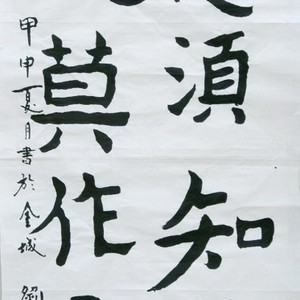 須知
莫作
甲申夏月書於金城 劉